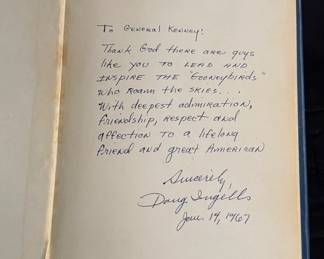 To General Kenney:
Thank God there are guys
like you to LEAD AND
INSPIRE THE "Gooneybirds"
who Roam the skies...
With deepest admiration,
friendship, respect and
affection to a lifelong
friend and great American
Sincerely,
Doug Ingells
Jan. 14, 1967